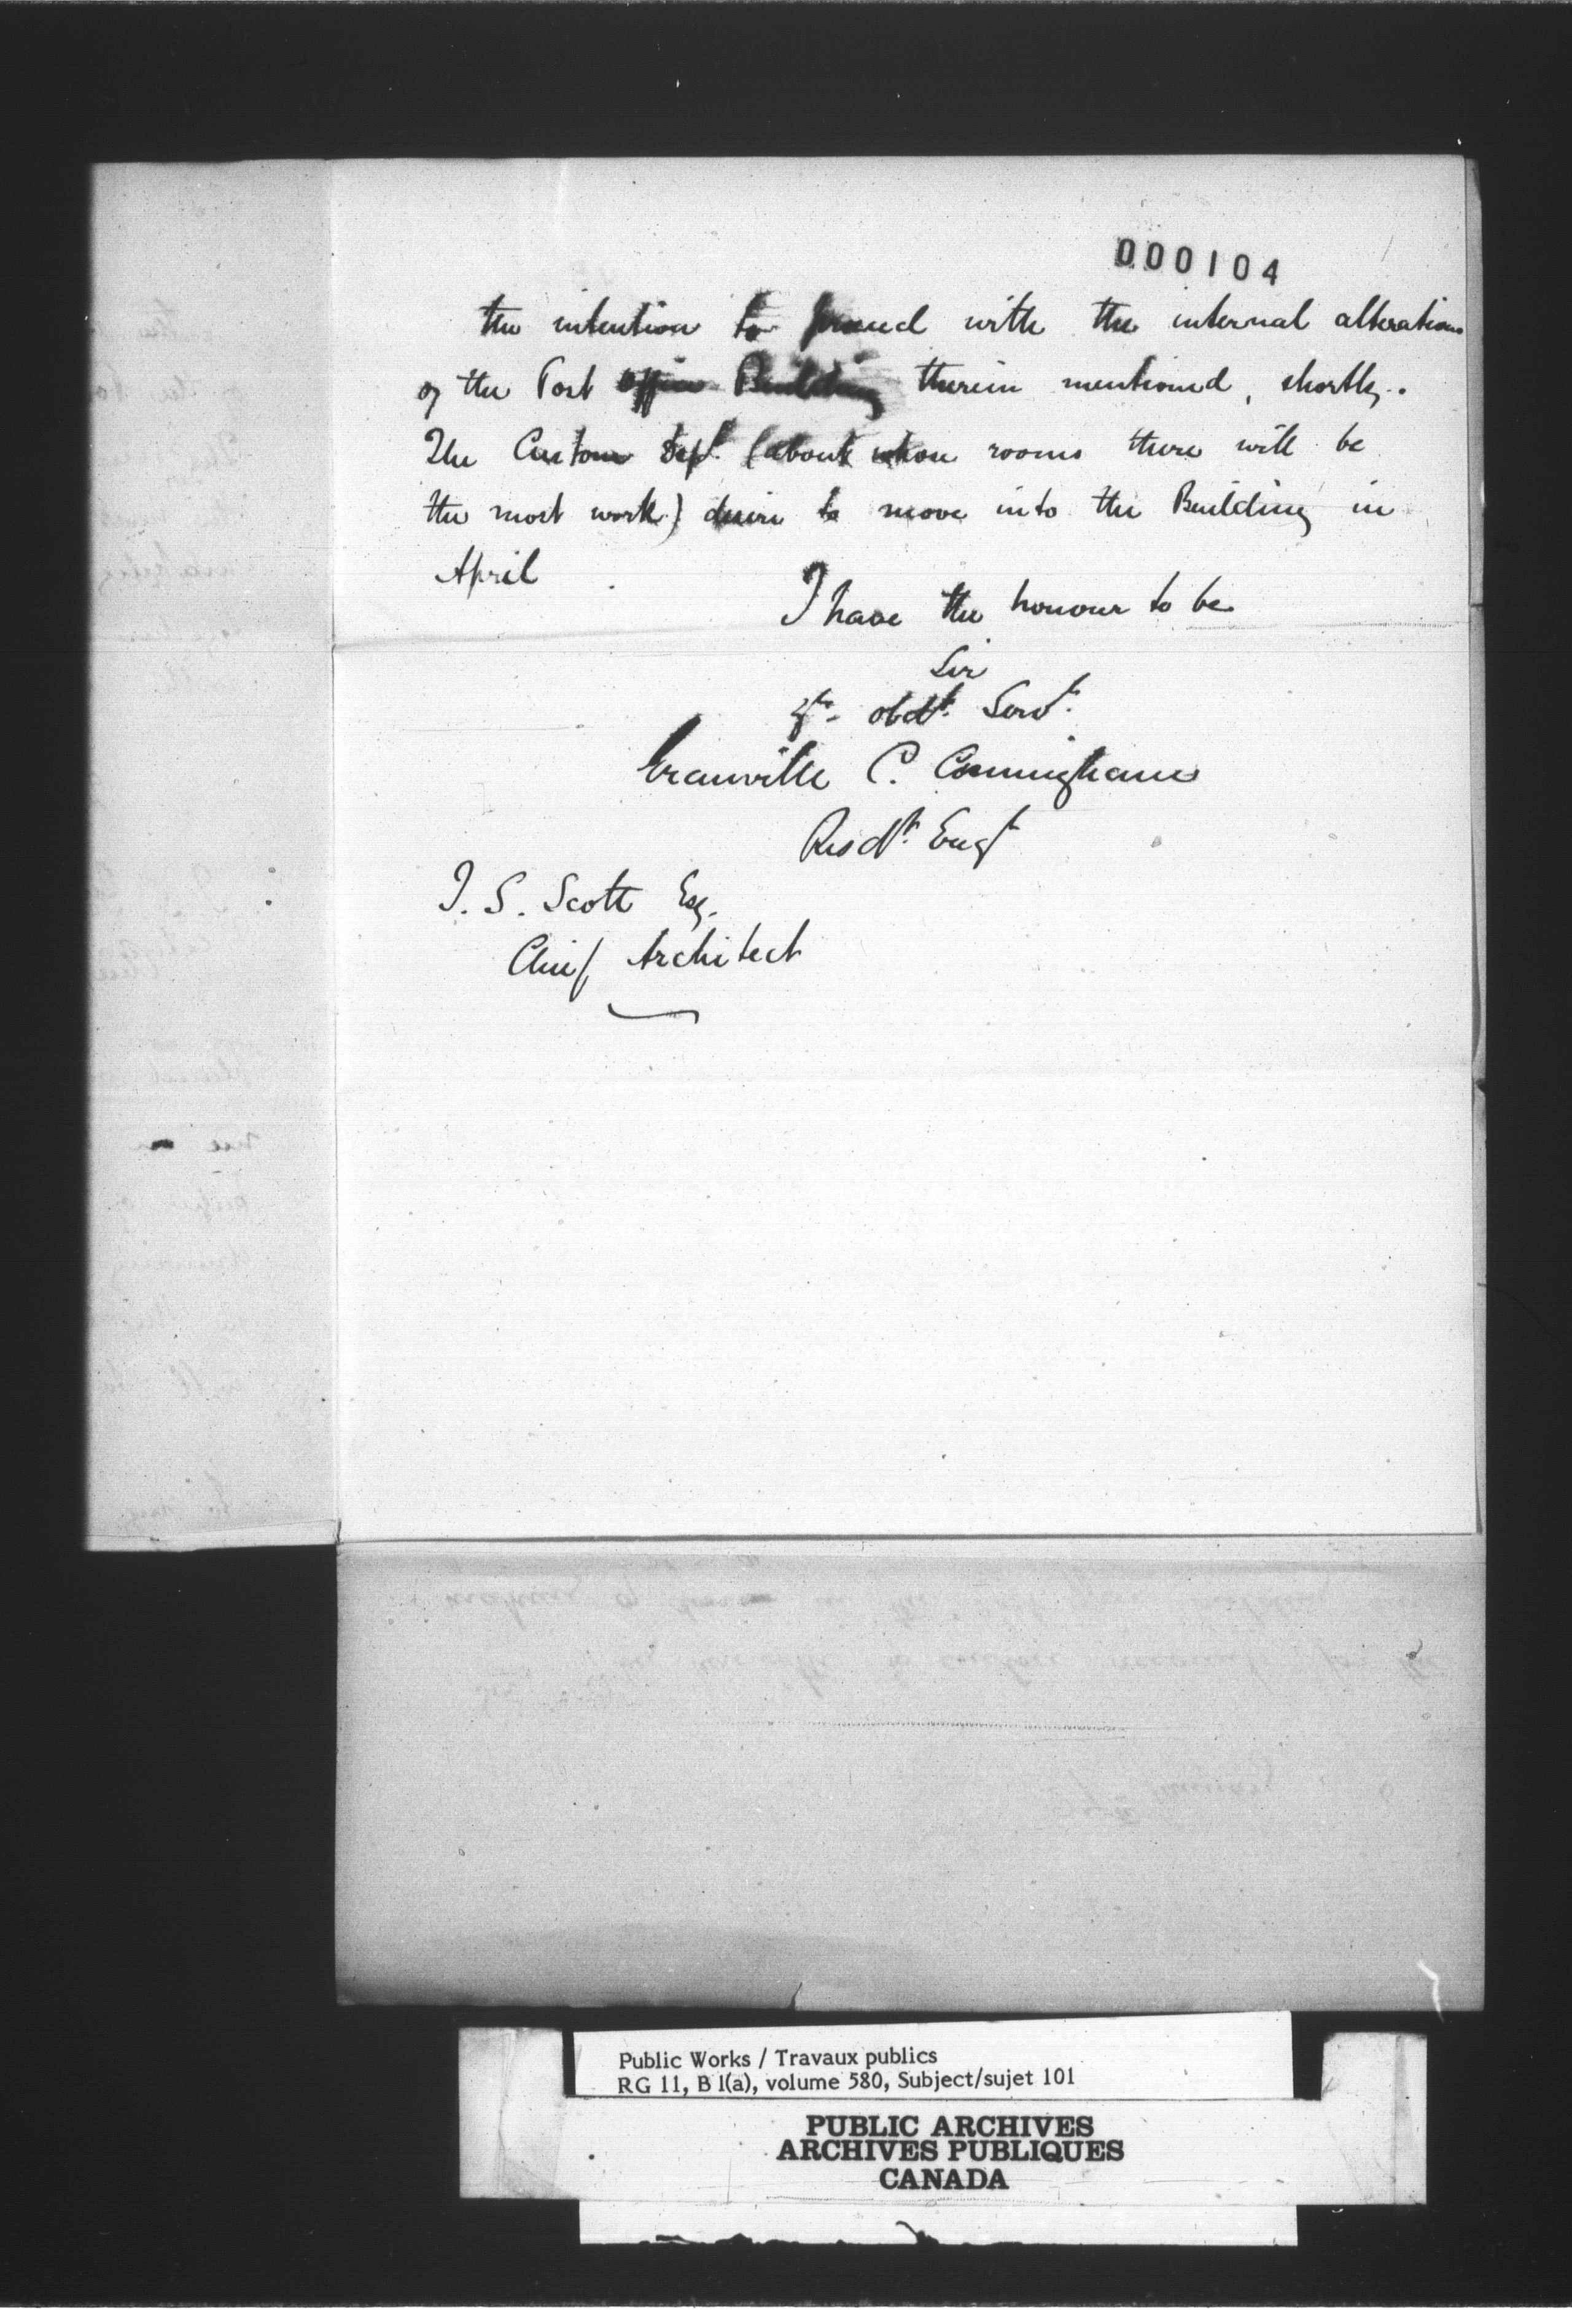 000104
the intention to proceed with the internal alterations
of the Post Office Building therein mentioned, shortly.
The Custom Dept. (about whose rooms there will be
the most work) desire to move into the Building in
April
I have the honour to be
Sir
Yr. obdt. Servt.
Granville C. Cunningham
Resdt. Engr
T. S. Scott Esq.
Chief Architect
Public Works / Travaux publics
RG 11, B 1(a), volume 580, Subject/sujet 101
PUBLIC ARCHIVES
ARCHIVES PUBLIQUES
CANADA